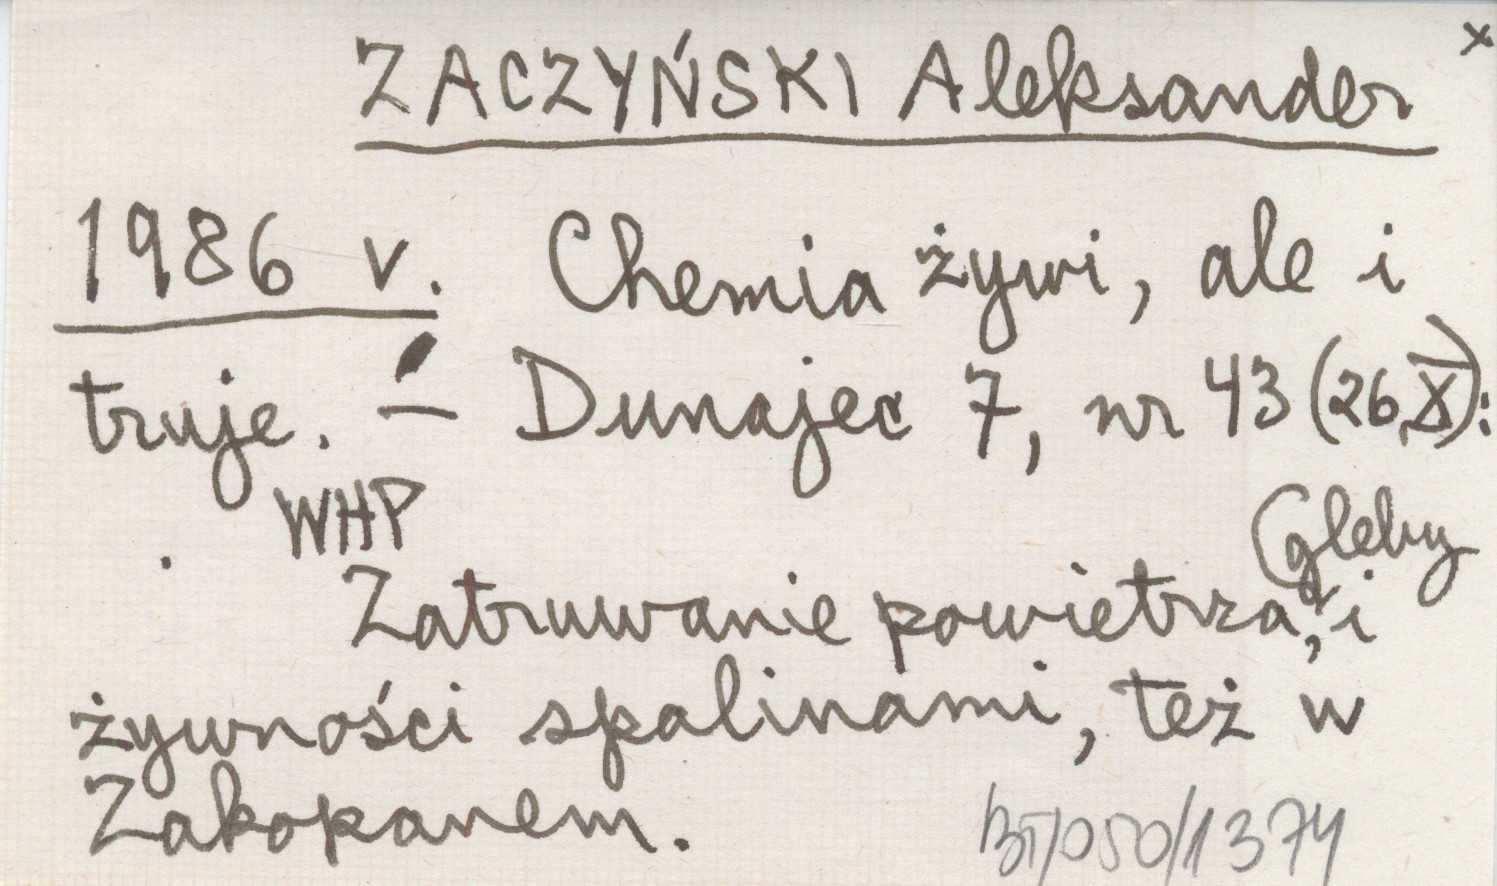 ZACZYŃSKI Aleksander x
1986 v. Chemia żywi, ale i
truje. — Dunajec 7, nr 43 (26.X):
WHP
gleby
Zatruwanie powietrza, i
żywności spalinami, też w
Zakopanem.
BT/050/1374